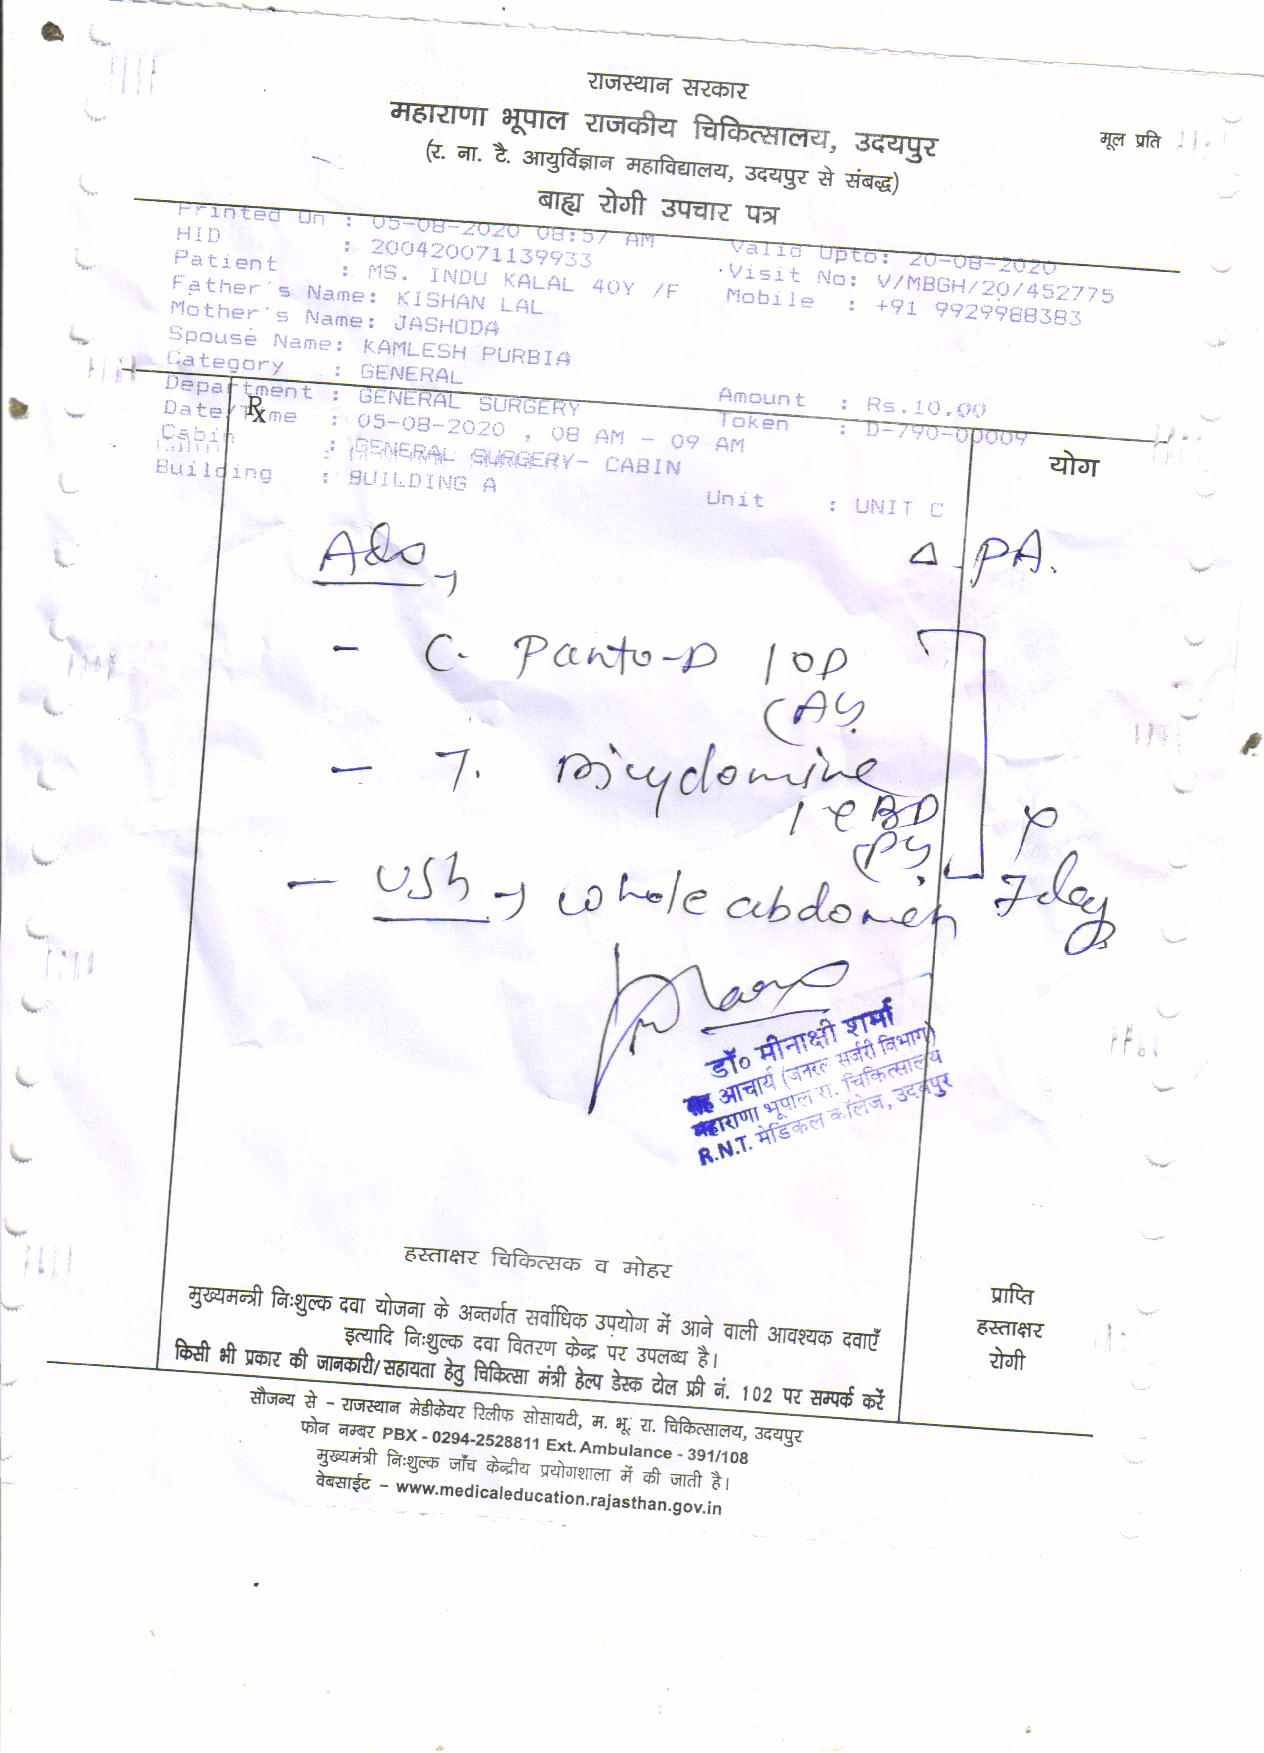 राजस्थान सरकार
महाराणा भूपाल राजकीय चिकित्सालय, उदयपुर
मूल प्रति
(र. ना. टै. आयुर्विज्ञान महाविद्यालय, उदयपुर से संबद्ध)
बाह्य रोगी उपचार पत्र
Printed On : 05-08-2020 08:57 AM Valid Upto: 20-08-2020
HID : 200420071139933 Visit No: V/MBGH/20/452775
Patient : MS. INDU KALAL 40Y /F Mobile : +91 9929988383
Father's Name: KISHAN LAL
Mother's Name: JASHODA
Spouse Name: KAMLESH PURBIA
Category : GENERAL Amount : Rs.10.00
Department : GENERAL SURGERY Token : D-790-00009
Date/Time : 05-08-2020 , 08 AM - 09 AM
Cabin : GENERAL SURGERY- CABIN
Building : BUILDING A Unit : UNIT C
Rx
योग
Δ PA.
- C. Panto-D 1 OD
- T. Dicyclomine
1 BD
- USG → whole abdomen
7 day
डॉ० मीनाक्षी शर्मा
सह आचार्य (जनरल सर्जरी विभाग)
महाराणा भूपाल रा. चिकित्सालय
R.N.T. मेडिकल कॉलेज, उदयपुर
हस्ताक्षर चिकित्सक व मोहर
मुख्यमन्त्री निःशुल्क दवा योजना के अन्तर्गत सर्वाधिक उपयोग में आने वाली आवश्यक दवाएँ
इत्यादि निःशुल्क दवा वितरण केन्द्र पर उपलब्ध है।
किसी भी प्रकार की जानकारी/सहायता हेतु चिकित्सा मंत्री हेल्प डेस्क टोल फ्री नं. 102 पर सम्पर्क करें
प्राप्ति
हस्ताक्षर
रोगी
सौजन्य से - राजस्थान मेडीकेयर रिलीफ सोसायटी, म. भू. रा. चिकित्सालय, उदयपुर
फोन नम्बर PBX - 0294-2528811 Ext. Ambulance - 391/108
मुख्यमंत्री निःशुल्क जाँच केन्द्रीय प्रयोगशाला में की जाती है।
वेबसाईट - www.medicaleducation.rajasthan.gov.in